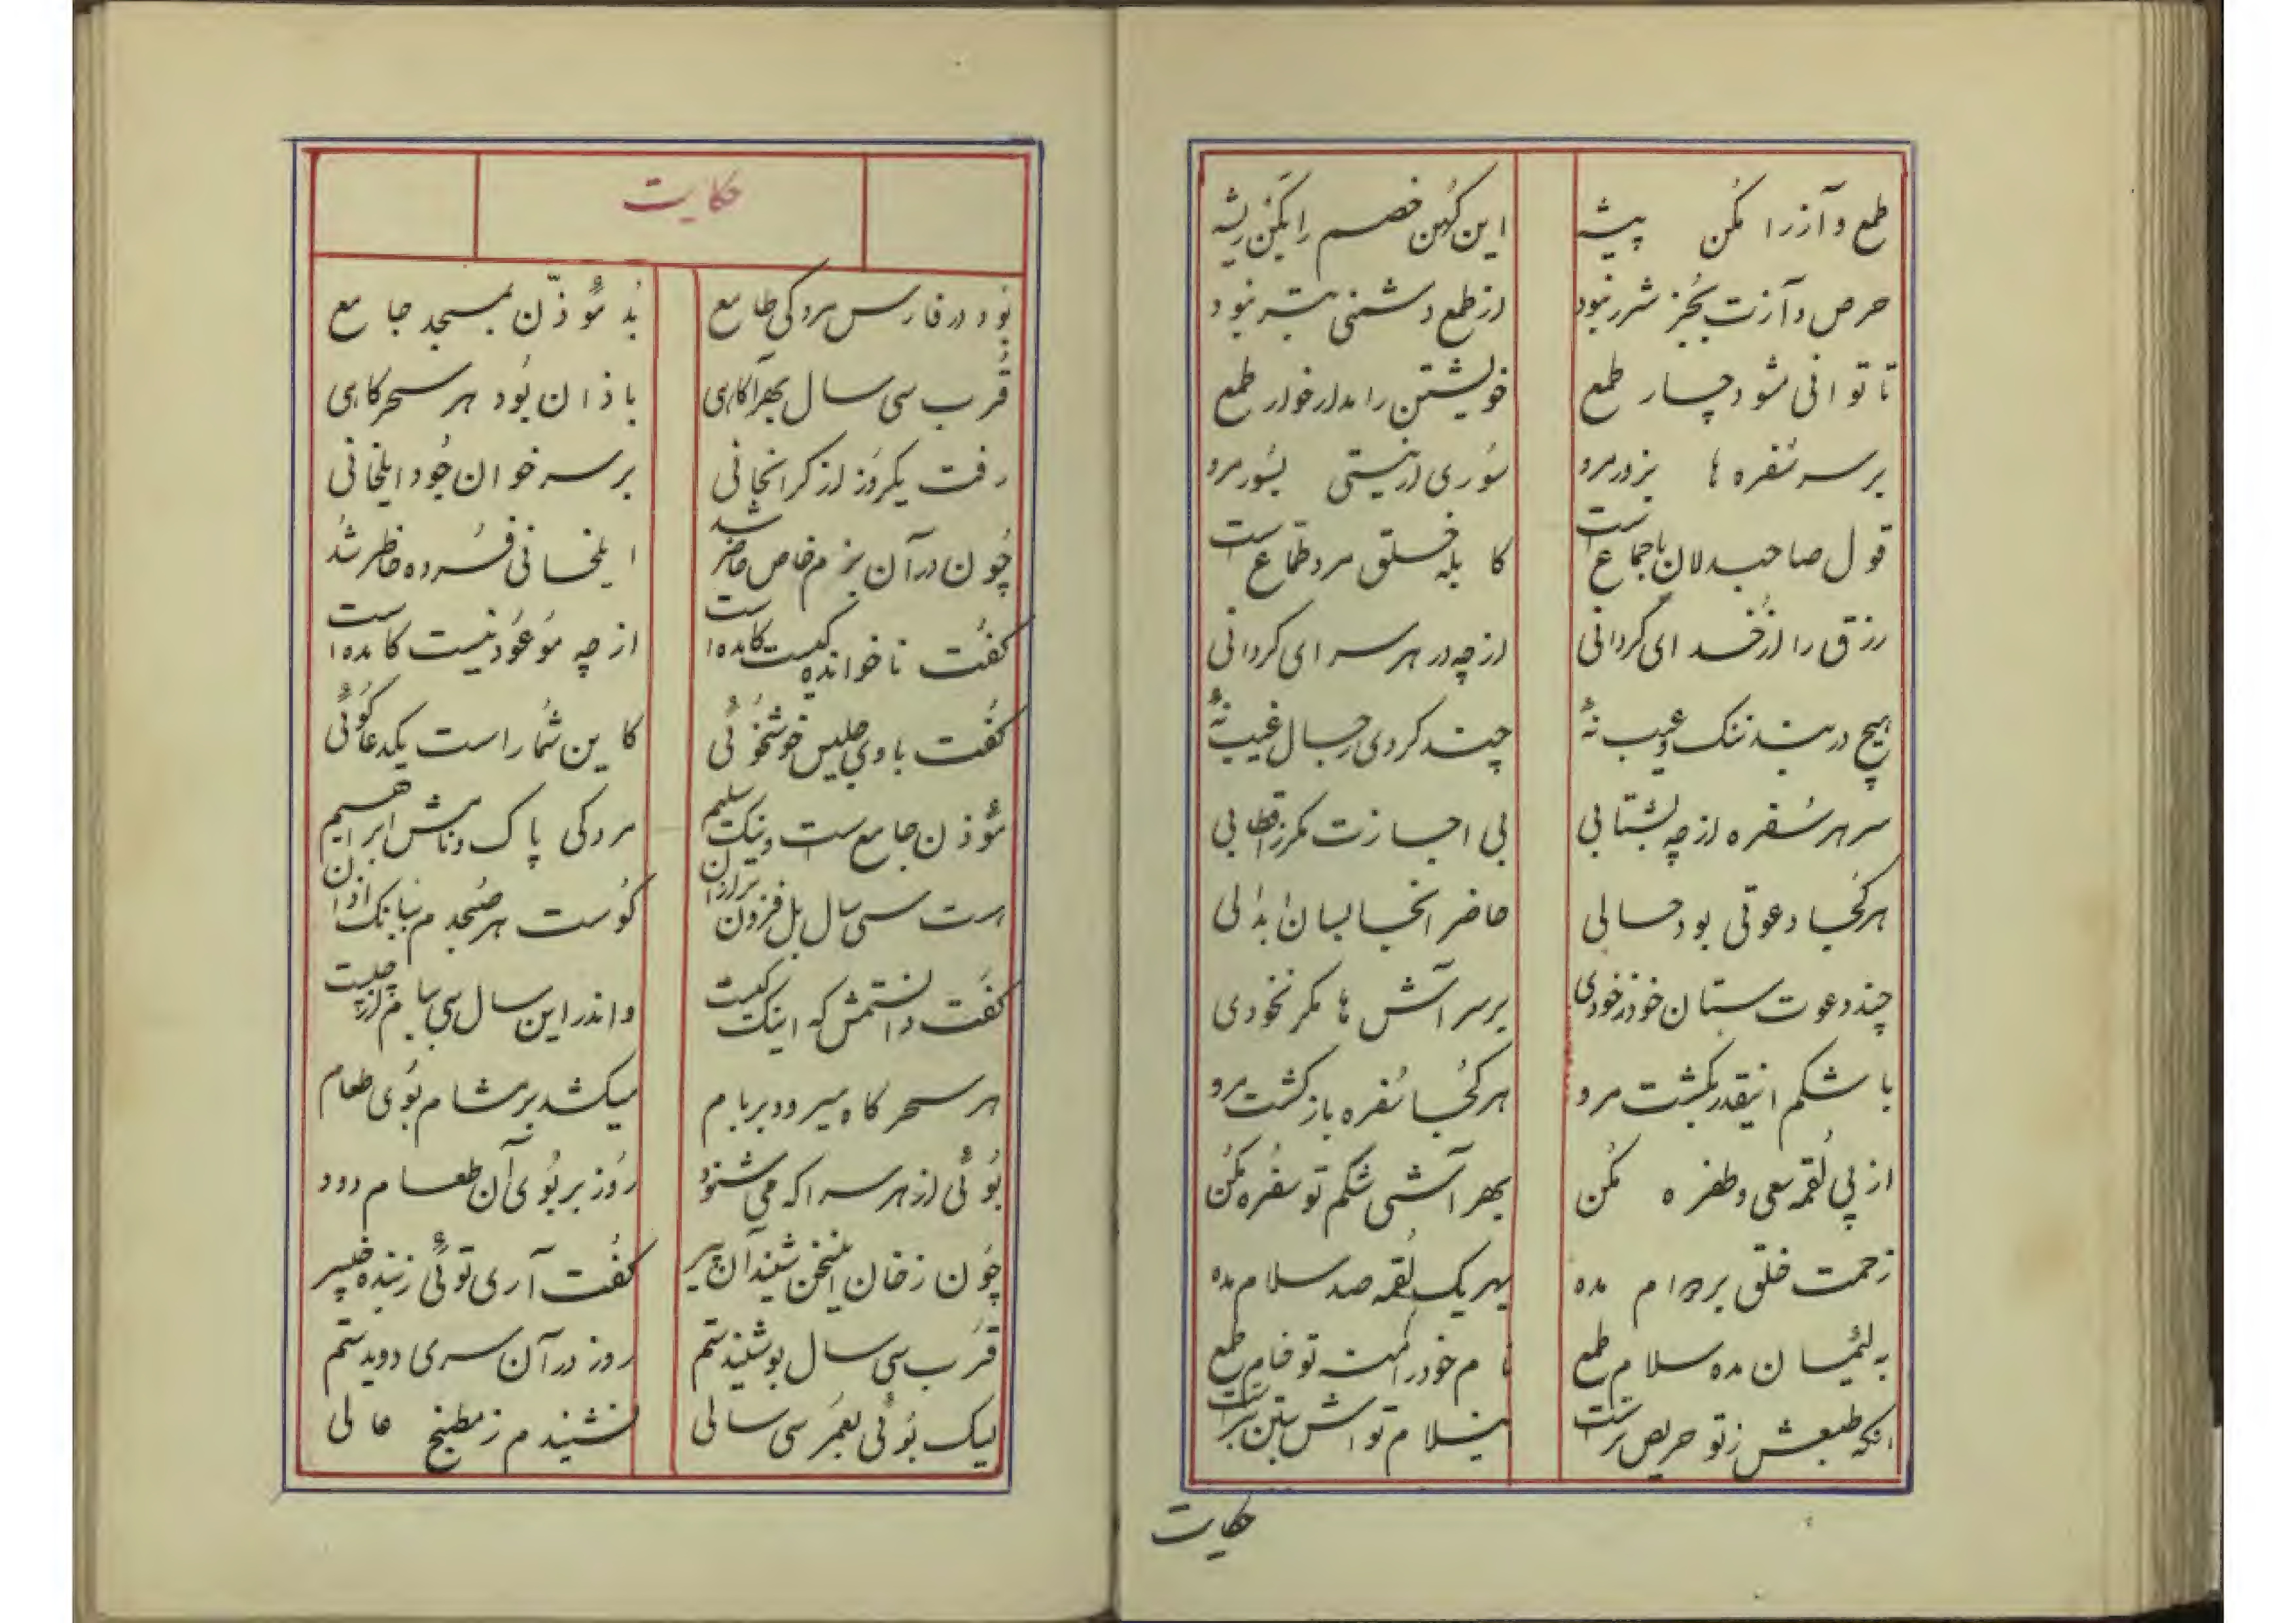 طمع و آز را مکن پیشه این کهن خصم را بکن ریشه
حرص و آزت بجز شرر نبود از طمع دشمنی بتر نبود
تا توانی مشو دچار طمع خویشتن را مدار خوار طمع
بر سر سفره ها بزور مرو سوری ار نیستی بسور مرو
قول صاحبدلان باجماع است کابله خلق مرد طماع است
رزق را از خدای گر دانی از چه در هر سرای گردانی
هیچ در بند ننک و عیب نهٔ چند گردی رجال غیب نهٔ
سر هر سفره از چه بشتابی بی اجازت مکر ز اقطابی
هر کجا دعوتی بود حالی حاضر انجا بسان بدٰلی
چند دعوت ستان خود ز خودی بر سر آش ها مکر نخودی
با شکم اینقدر بکشت مرو هر کجا سفره باز کشت مرو
از پی لقمه سعی و طفره مکن بهر آشی شکم تو سفره مکن
زحمت خلق بر دوام مده بهر یک لقمه صد سلام مده
به لئیمان مده سلام طمع نام خود را منه تو خام طمع
آنکه طبعش ز تو حریص تر است سلام تو اش بتن تبر است
حکایت
حکایت
بود در فارس مردکی طامع بد مؤذّن بمسجد جامع
قرب سی سال بهر آکاری باذان بود هر سحر کاری
رفت یکروز از کرانجانی بر سر خوان جود ایلخانی
چون در آن بزم خاص حاضر شد ایلخانی فسرده خاطر شد
کفت ناخوانده کیست کامده است از چه موعود نیست کامده است
کفت با وی جلیس خوشخوئی کاین شما راست یکدعا کوئی
مؤذن جامع ست و نیک سلیم مردکی پاک و نامش ابراهیم
هست سی سال بل فزون تر از آن کوست هر صبحدم ببانک اذان
کفت دانستمش که اینک کیست و اندر این سال سی ببام از چیست
هر سحر کاه میرود بر بام میکشد بر مشام بوی طعام
بوئی از هر سرا که می شنود روز بر بوی آن طعام دود
چون ز خان این سخن شنید آن پیر کفت آری توئی ز بنده خبیر
قرب سی سال بو شنیدستم روز در آن سری دویدستم
لیک بوئی بعمر سی سالی نشنیدم ز مطبخ عالی